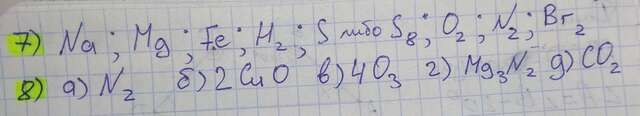 7) Na; Mg; Fe; H₂; S либо S₈; O₂; N₂; Br₂
8) а) N₂ б) 2CuO в) 4O₃ г) Mg₃N₂ д) CO₂